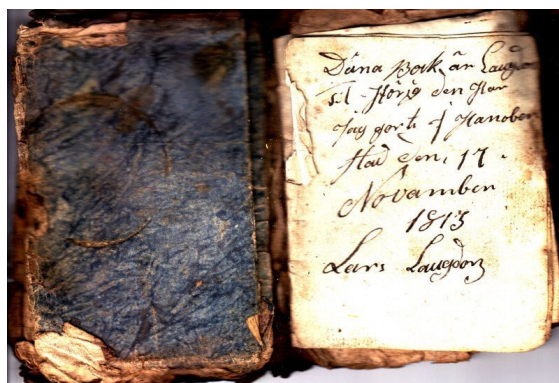 Däna Bock är Laugdon
til Hörig den Har
Jag gort i Hanober
Stad den, 17.
Novamber
1813
Lars Laugdon